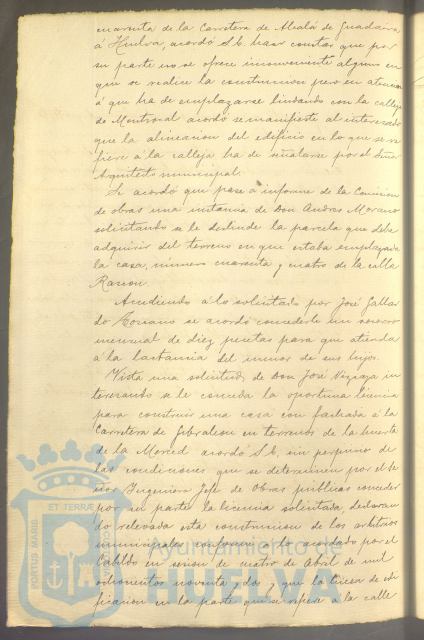 cuarenta de la Carretera de Alcalá de Guadaira
á Huelva, acordó S.E. hacer constar que por
su parte no se ofrece inconveniente alguno en
que se realice la construccion pero en atencion
á que ha de emplazarse lindando con la calleja
de Montrocal acordó se manifieste al interesado
que la alineacion del edificio en lo que se re
fiere á la calleja ha de señalarse por el Señor
Arquitecto municipal.
Se acordó que pase á informe de la Comision
de obras una instancia de Don Andres Moreno
solicitando se le deslinde la parcela que debe
adquirir del terreno en que estaba emplazada
la casa, número cuarenta y cuatro de la calle
Rascon.
Accediendo á lo solicitado por José Gallar
do Toriano se acordó concederle un socorro
mensual de diez pesetas para que atienda
á la lactancia del menor de sus hijos.
Vista una solicitud de Don José Vizcaya in
teresando se le conceda la oportuna licencia
para construir una casa con fachada á la
Carretera de Gibraleon en terrenos de la huerta
de la Merced acordó S.E., sin perjuicio de
las condiciones que se determinen por el Se
ñor Ingeniero Jefe de Obras públicas conceder
por su parte la licencia solicitada, declaran
do relevada esta construccion de los arbitrios
municipales conforme á lo acordado por el
Cabildo en sesion de cuatro de Abril de mil
ochocientos noventa y dos y que la linea de edi
ficacion en la parte que se refiere á la calle
PORTUS MARIS ET TERRÆ CUSTODIA
Ayuntamiento de
HUELVA